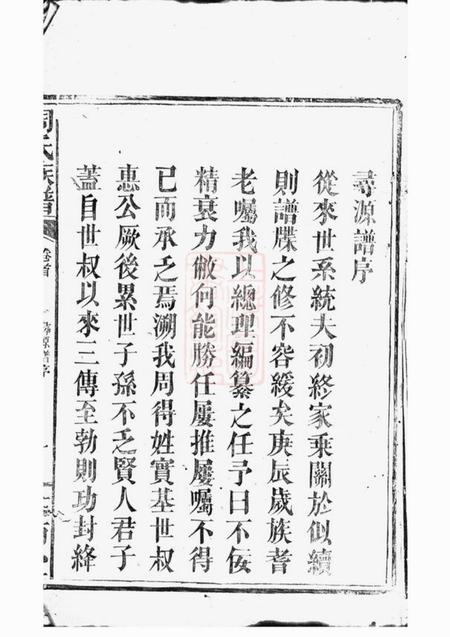 尋源譜序
從來世系統夫初終家乘關於似續
則譜牒之修不容緩矣庚辰歲族耆
老囑我以總理編纂之任予曰不佞
精衰力敝何能勝任屢推屢囑不得
已而承乏焉溯我周得姓實基世叔
惠公厥後累世子孫不乏賢人君子
蓋自世叔以來三傳至勃則功封絳
周氏族譜
卷首
尋源譜序